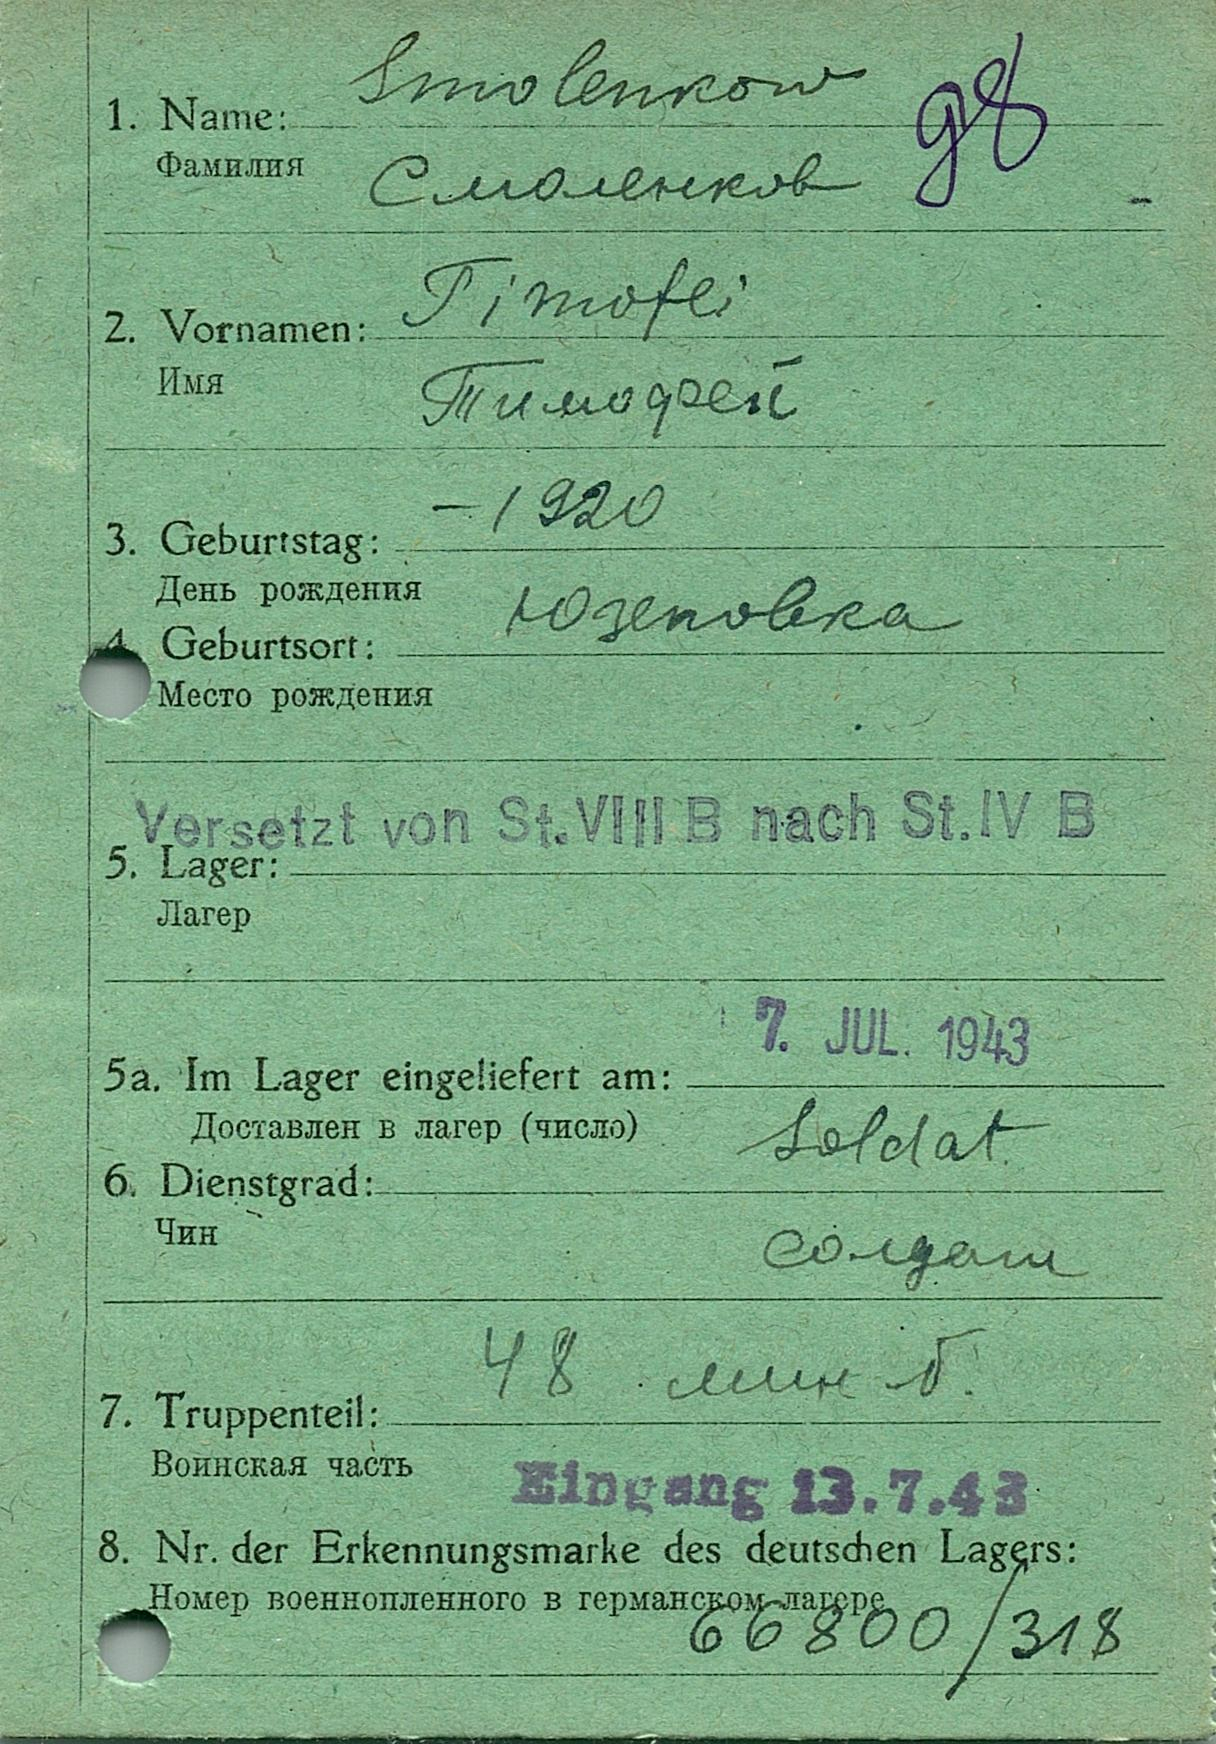 Smolenkow
98
1. Name:
Фамилия
Смоленков
Timofei
2. Vornamen:
Имя
Тимофей
– 1920
3. Geburtstag:
День рождения
Юзеповка
4. Geburtsort:
Место рождения
Versetzt von St. VIII B nach St. IV B
5. Lager:
Лагер
7. JUL. 1943
5a. Im Lager eingeliefert am:
Доставлен в лагер (число)
Soldat
6. Dienstgrad:
Чин
солдат
48 мин б.
7. Truppenteil:
Воинская часть
Eingang 13.7.43
8. Nr. der Erkennungsmarke des deutschen Lagers:
Номер военнопленного в германском лагере
66800/318